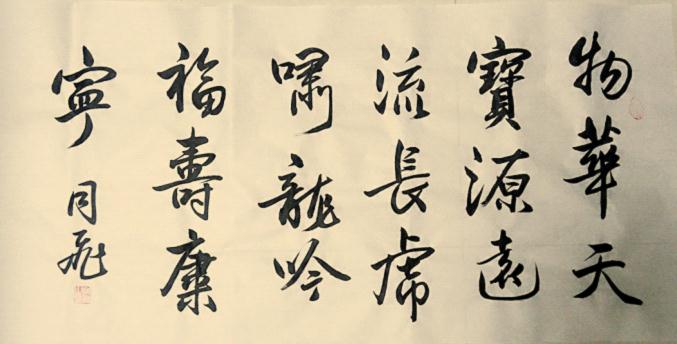 物華天
寶源遠
流長虎
嘯龍吟
福壽康
寧
同飛